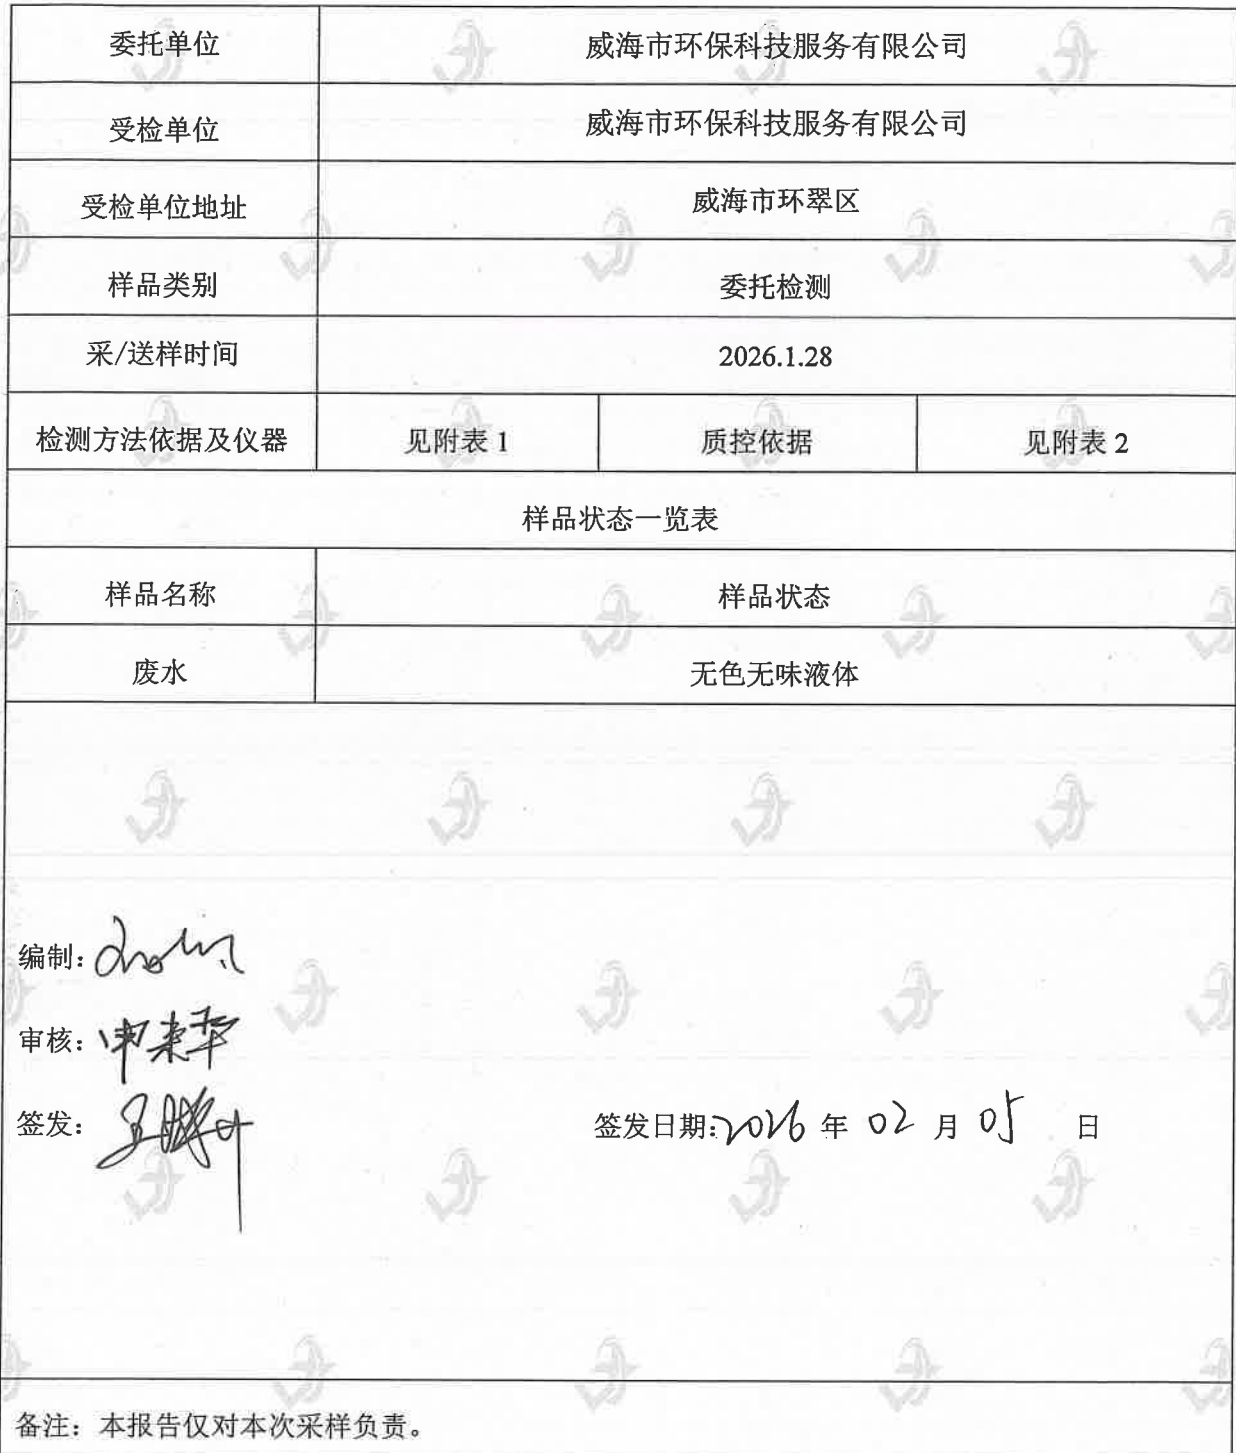 委托单位 威海市环保科技服务有限公司
受检单位 威海市环保科技服务有限公司
受检单位地址 威海市环翠区
样品类别 委托检测
采/送样时间 2026.1.28
检测方法依据及仪器 见附表 1 质控依据 见附表 2
样品状态一览表
样品名称 样品状态
废水 无色无味液体
编制:
审核: 申荣华
签发: 签发日期: 2026 年 02 月 05 日
备注：本报告仅对本次采样负责。